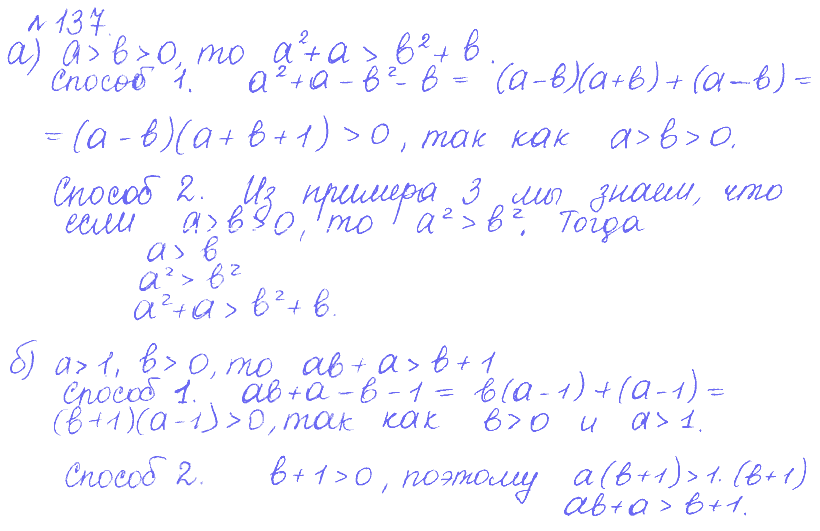 № 137.
а) a > b > 0, то a² + a > b² + b.
Способ 1. a² + a - b² - b = (a - b)(a + b) + (a - b) =
= (a - b)(a + b + 1) > 0, так как a > b > 0.
Способ 2. Из примера 3 мы знаем, что
если a > b > 0, то a² > b². Тогда
a > b
a² > b²
a² + a > b² + b.
б) a > 1, b > 0, то ab + a > b + 1
Способ 1. ab + a - b - 1 = b(a - 1) + (a - 1) =
(b + 1)(a - 1) > 0, так как b > 0 и a > 1.
Способ 2. b + 1 > 0, поэтому a(b + 1) > 1 · (b + 1)
ab + a > b + 1.